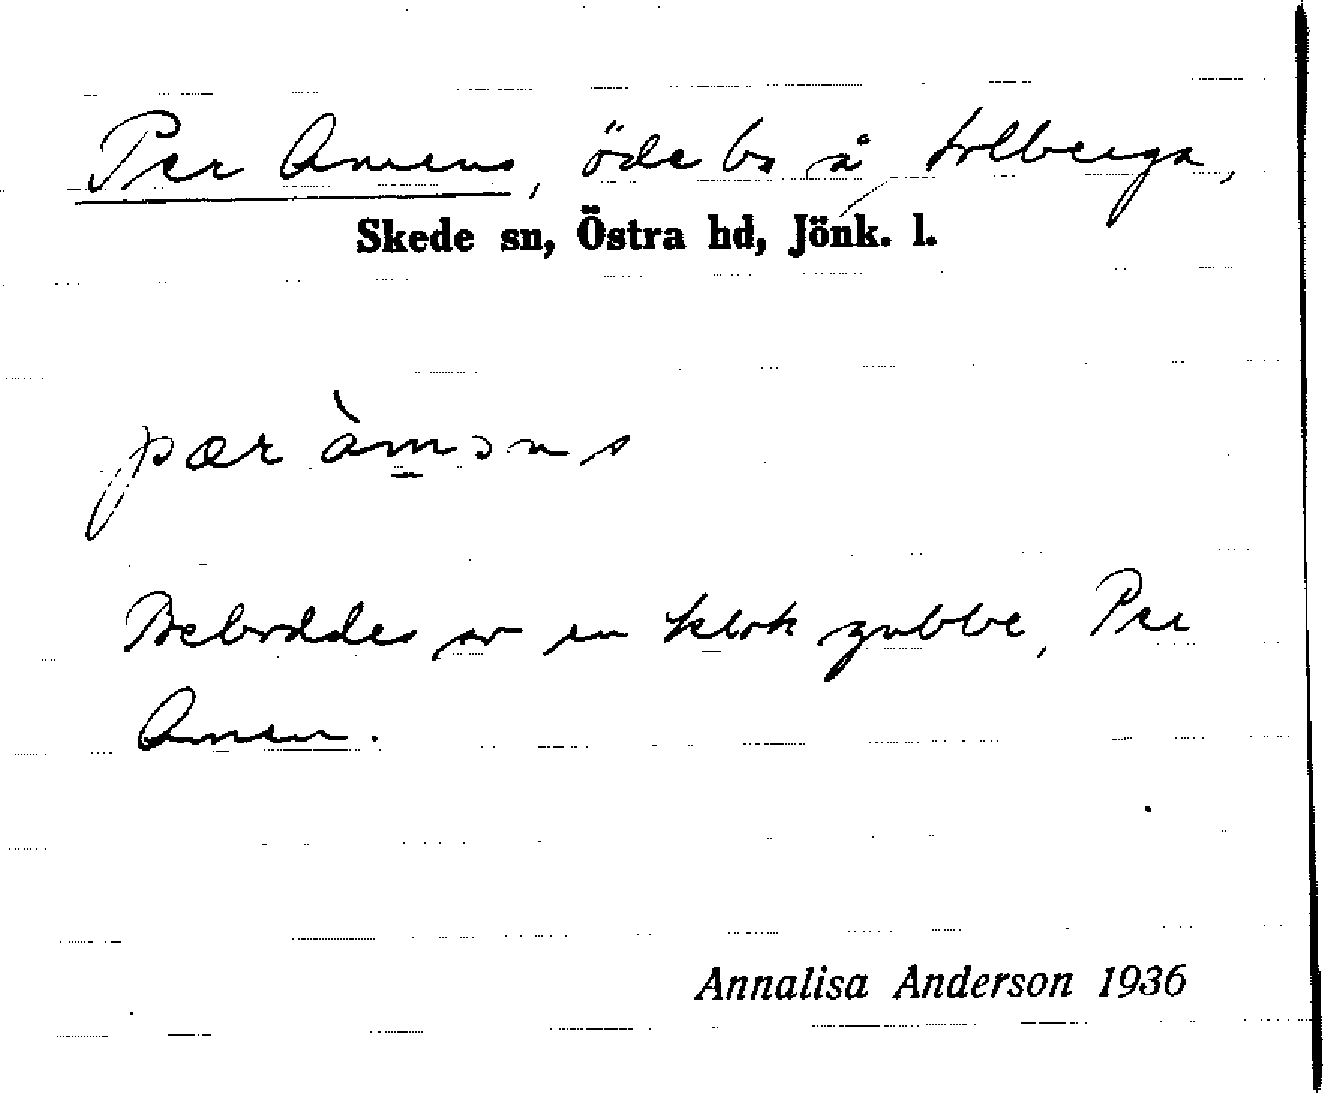 Per Amens, öde bs å Solberga,
Skede sn, Östra hd, Jönk. l.
pær àmɔns
Beboddes av en klok gubbe, Per
Amen.
Annalisa Anderson 1936